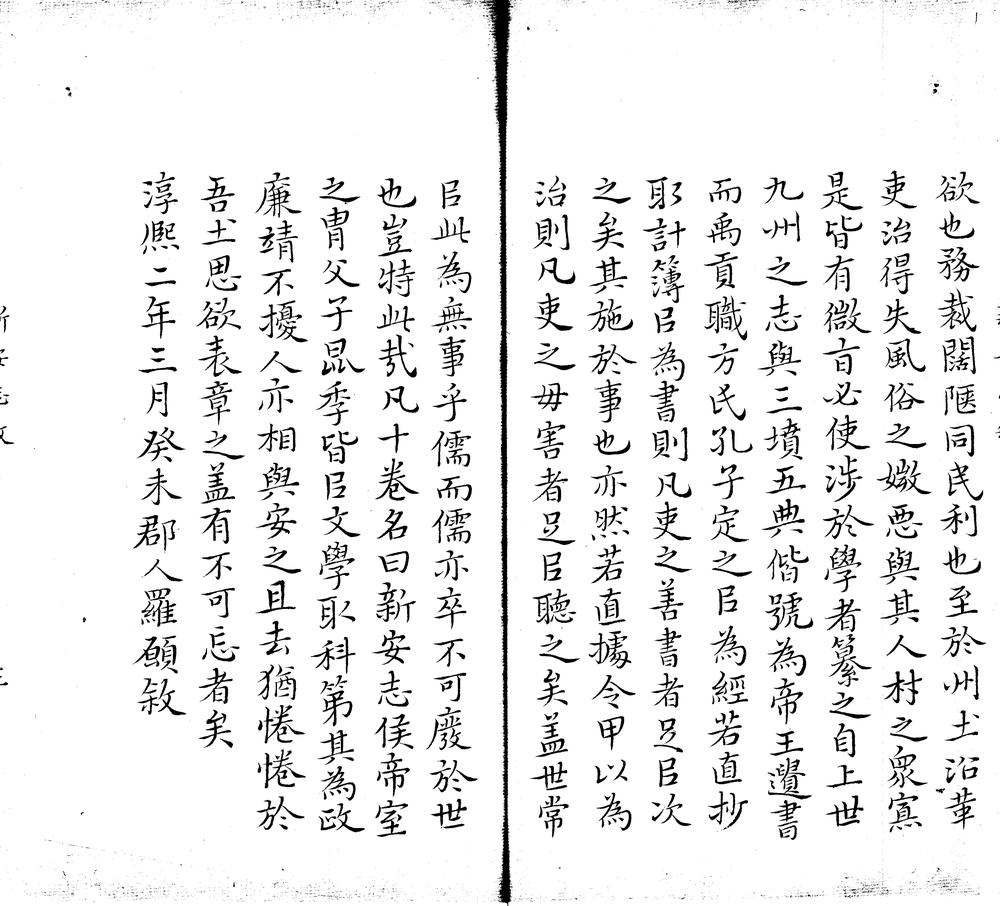 欲也務裁闊陿同民利也至於州土沿革
吏治得失風俗之媺惡與其人材之衆寡
是皆有微旨必使涉於學者纂之自上世
九州之志與三墳五典偕號為帝王遺書
而禹貢職方氏孔子定之㠯為經若直抄
取計簿㠯為書則凡吏之善書者足㠯次
之矣其施於事也亦然若直據令甲以為
治則凡吏之毋害者足㠯聽之矣盖世常
㠯此為無事乎儒而儒亦卒不可廢於世
也豈特此㢤凡十卷名曰新安志侯帝室
之冑父子昆季皆㠯文學取科第其為政
廉靖不擾人亦相與安之且去猶惓惓於
吾土思欲表章之盖有不可忘者矣
淳熙二年三月癸未郡人羅願敘